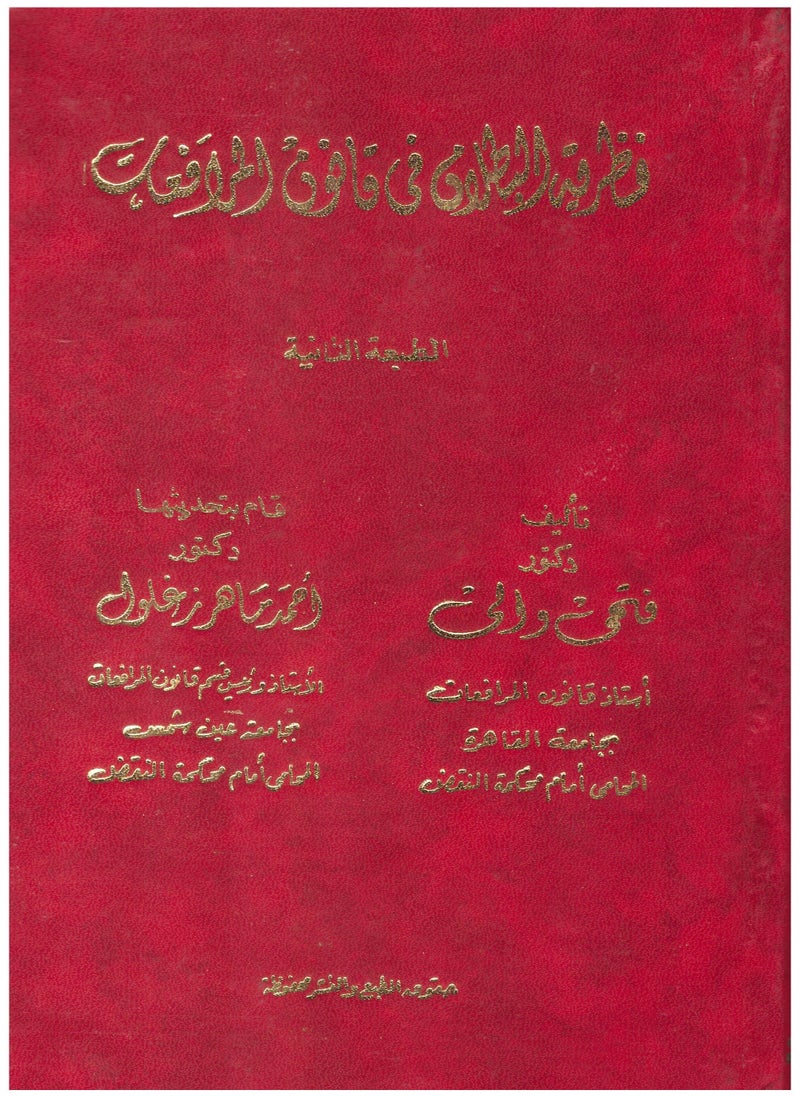 نظرية البطلان في قانون المرافعات
الطبعة الثانية
تأليف
دكتور
فتحى والى
أستاذ قانون المرافعات
بجامعة القاهرة
المحامى أمام محكمة النقض
قام بتحديثها
دكتور
أحمد ماهر زغلول
الأستاذ ورئيس قسم قانون المرافعات
بجامعة عين شمس
المحامى أمام محكمة النقض
حقوق الطبع والنشر محفوظة